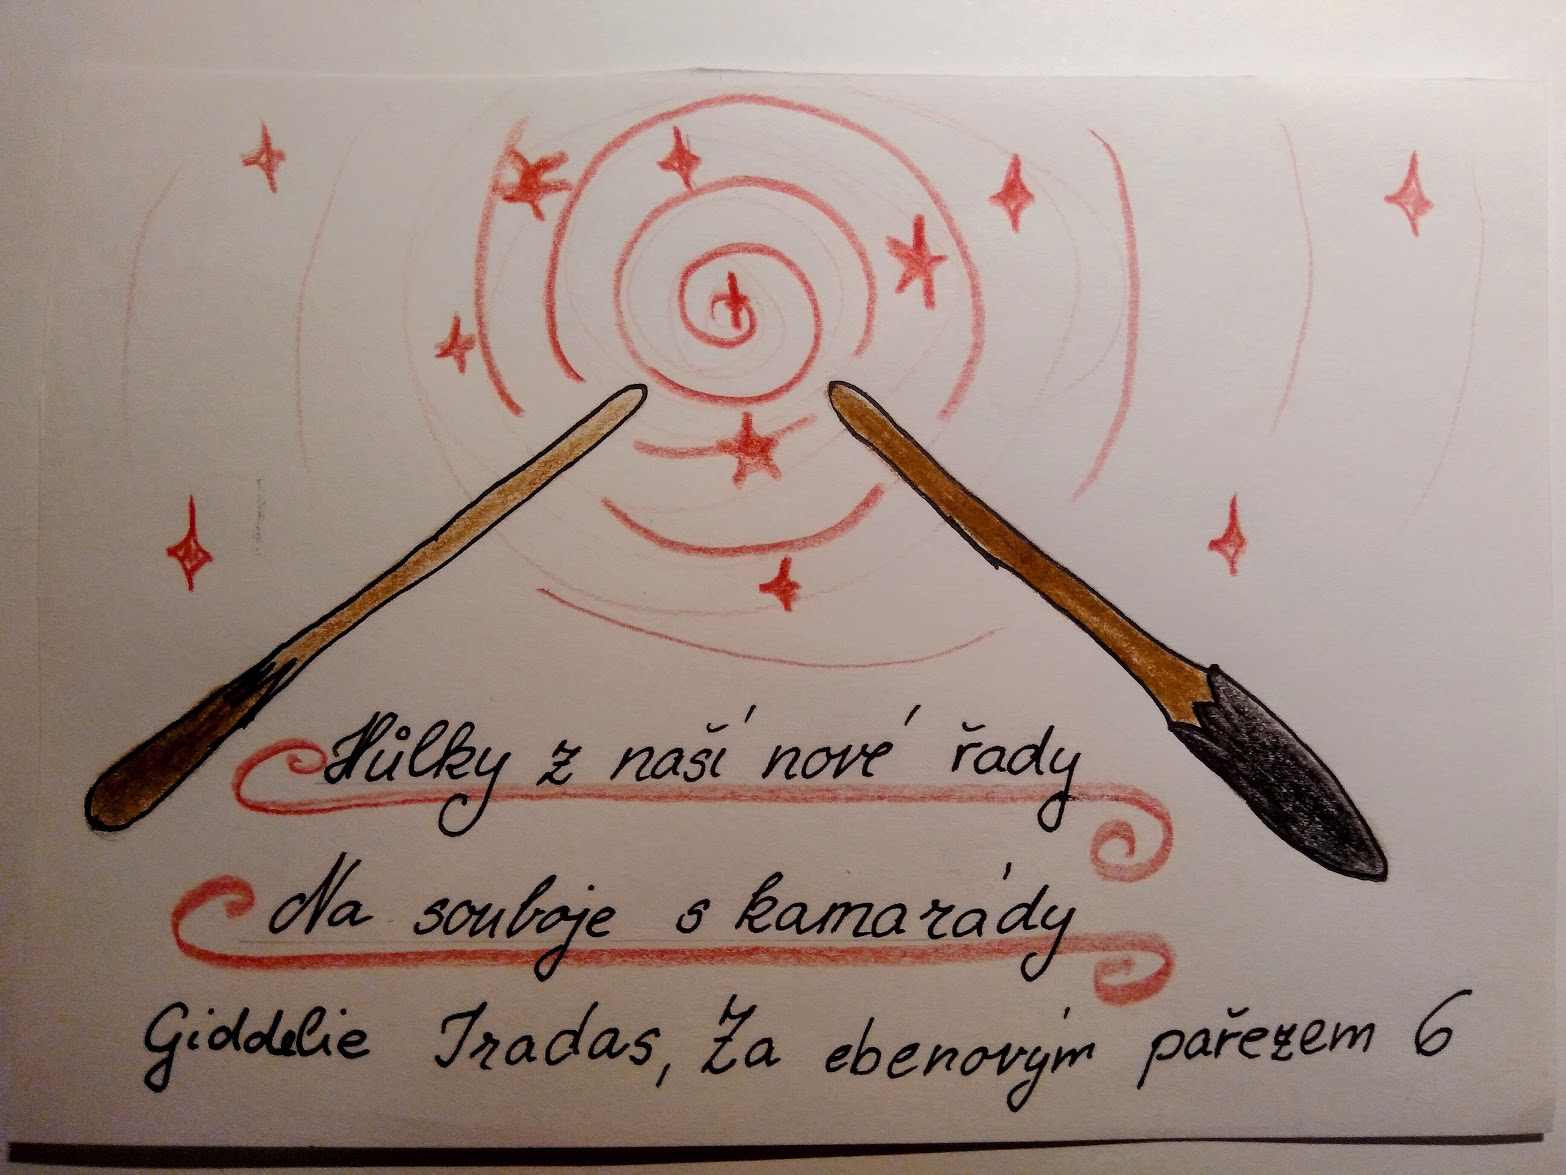 Hůlky z naší nové řady
Na souboje s kamarády
Giddelie Tradas, Za ebenovým pařezem 6